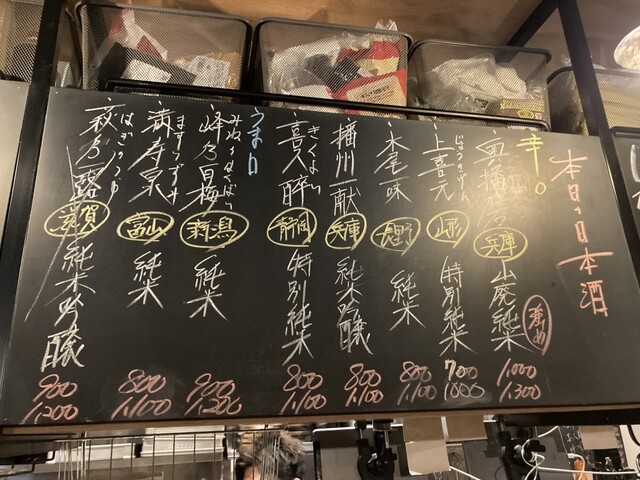 本日の日本酒
辛口
奥播磨 兵庫 山廃純米 薄め 1000 1,300
じょうきげん
上喜元 山形 特別純米 700 1000
水尾 一味 長野 純米 800 1,100
播州一献 兵庫 純米吟醸 800 1,100
きくよい
喜久酔 静岡 特別純米 800 1,100
うま口
みねのはくばい
峰乃白梅 新潟 純米 900 1,200
ますいずみ
満寿泉 富山 純米 800 1,100
はぎのつゆ
萩乃露 滋賀 純米吟醸 900 1,200